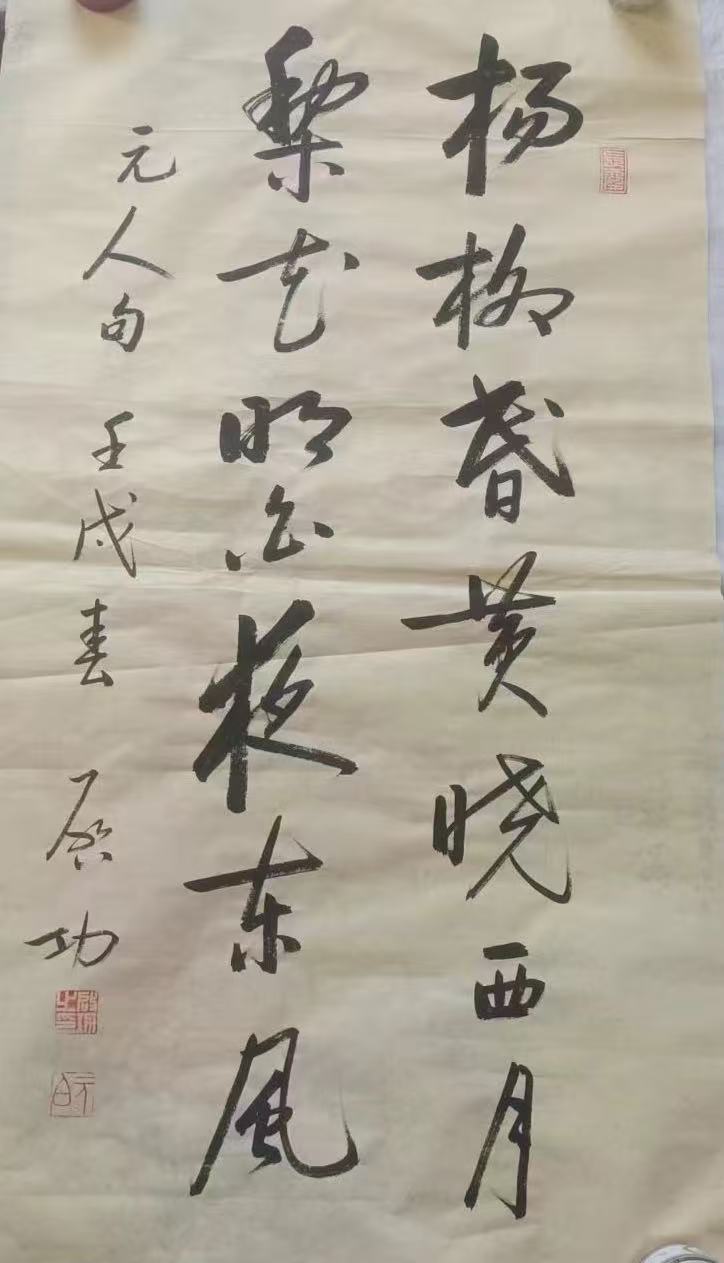 杨柳昏黄晓西月
梨花明白夜东风
元人句 壬戌春 启功
元白